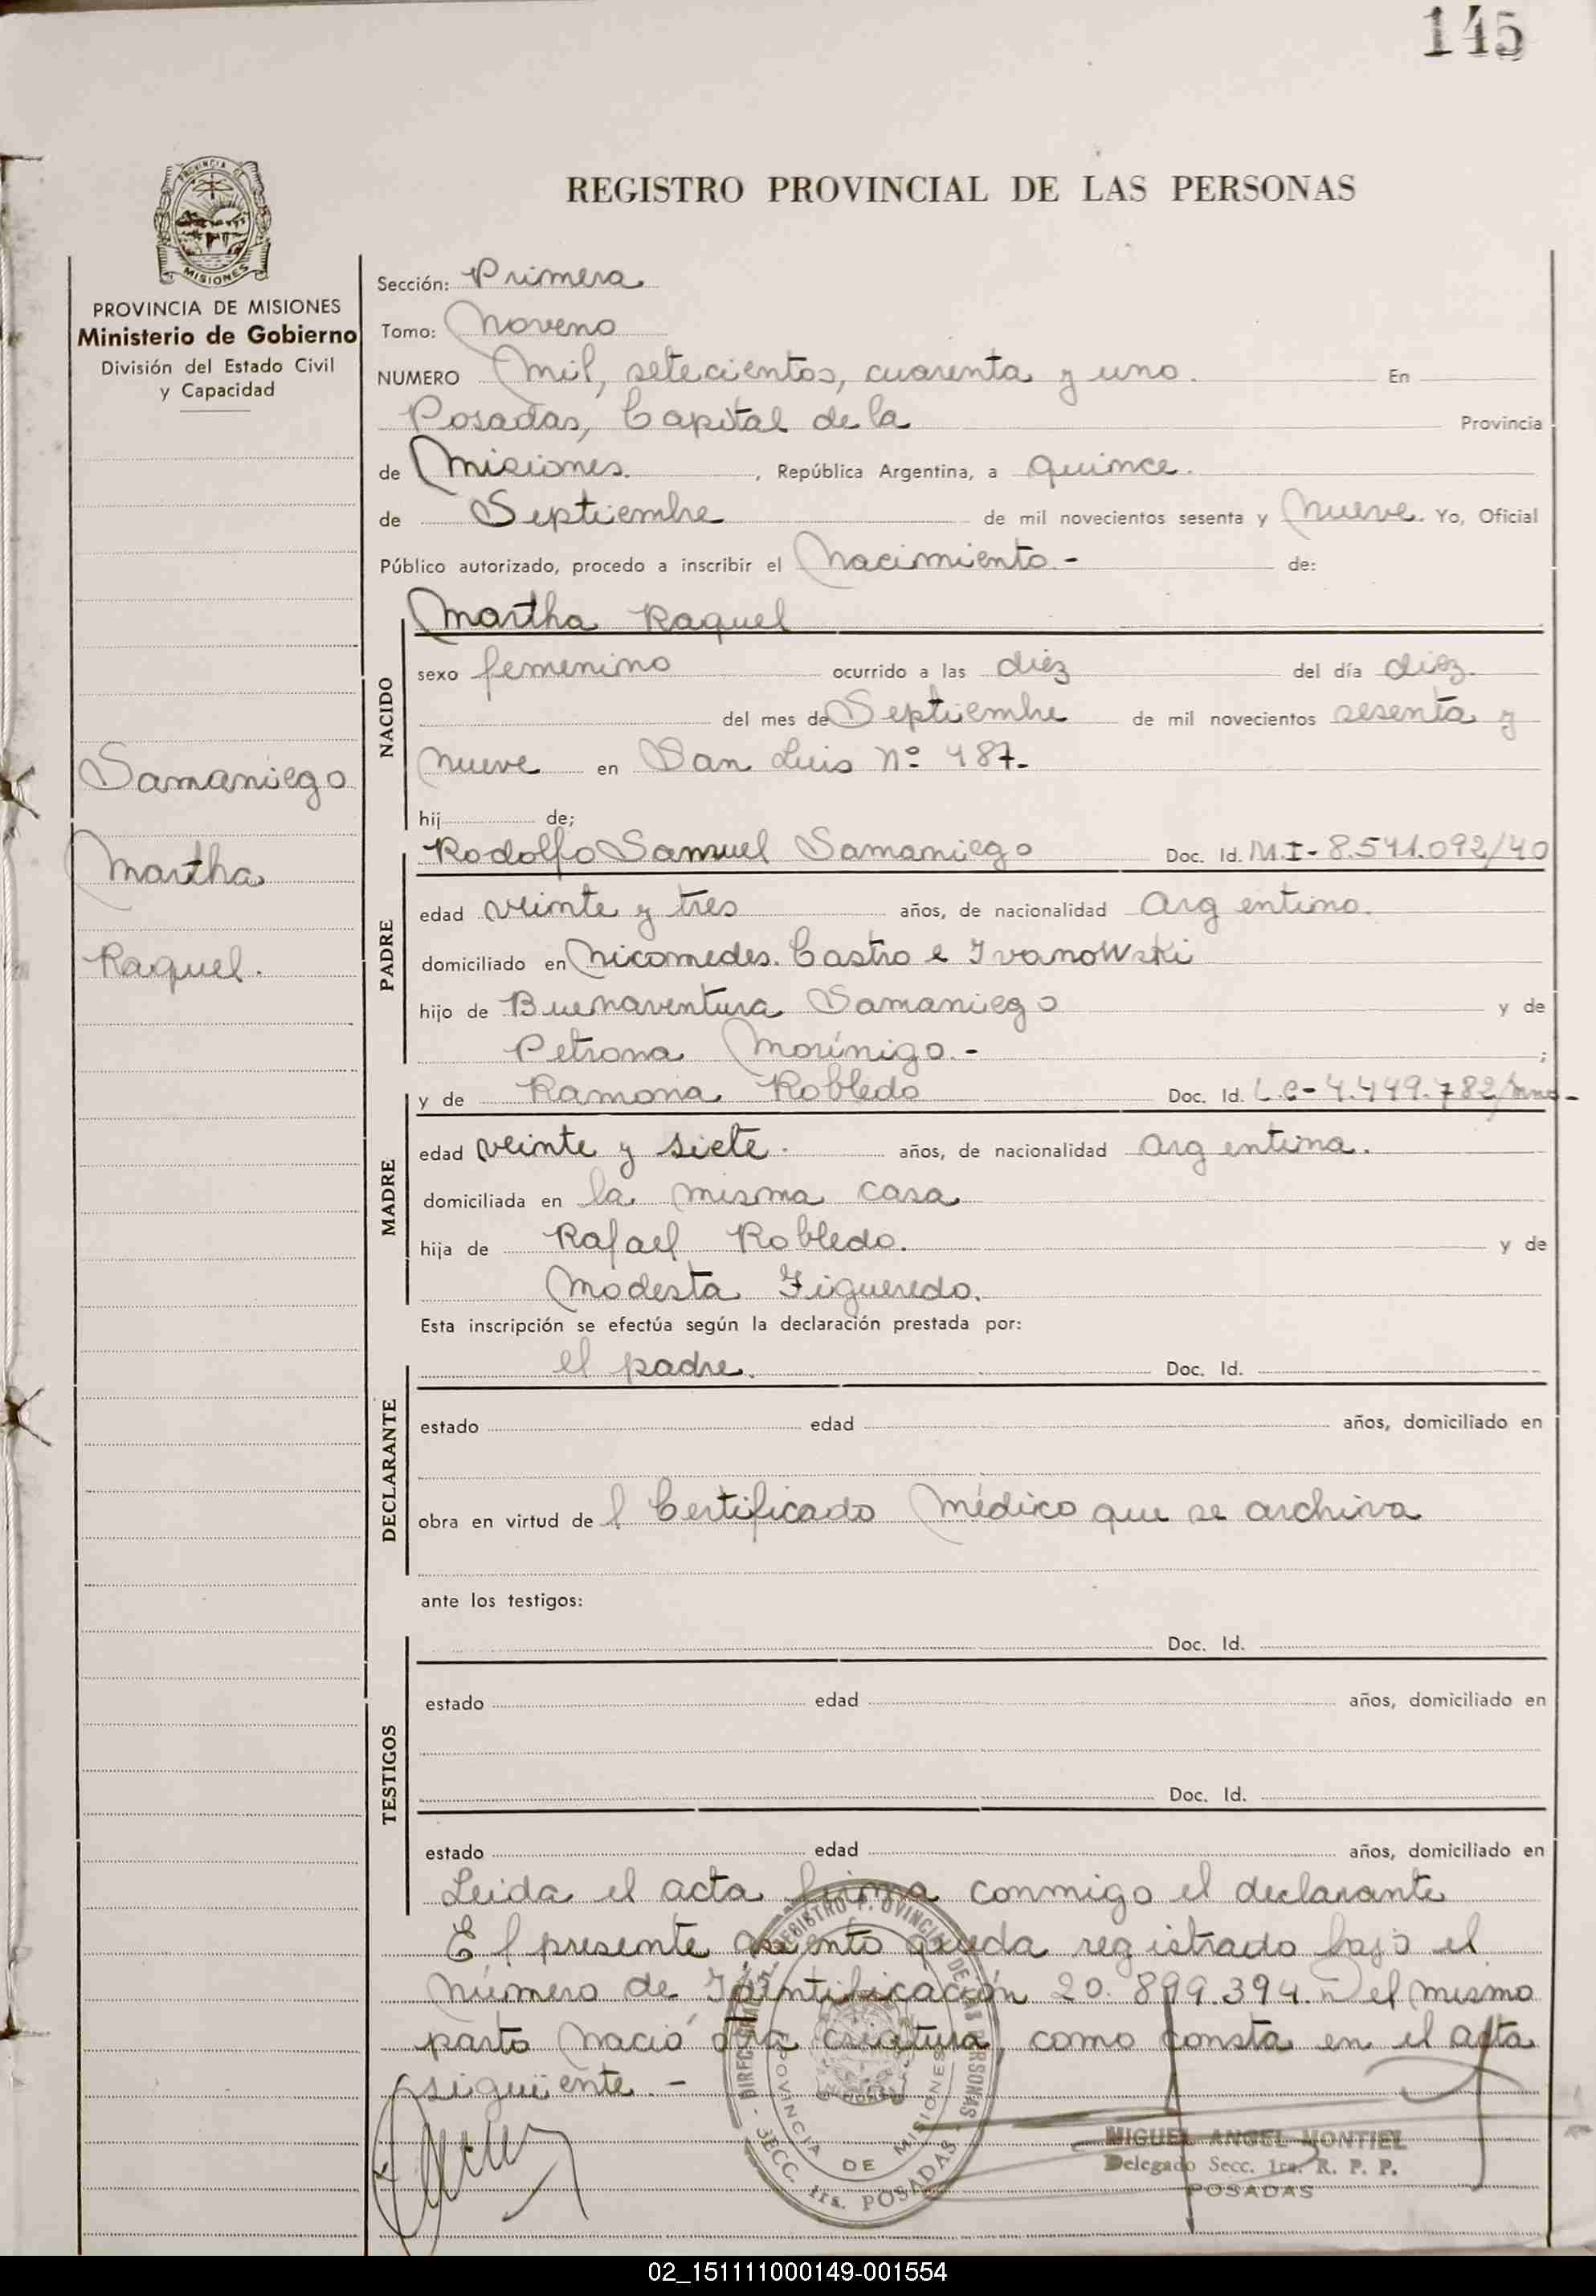 145
PROVINCIA DE
MISIONES
REGISTRO PROVINCIAL DE LAS PERSONAS
PROVINCIA DE MISIONES
Ministerio de Gobierno
División del Estado Civil
y Capacidad
Samaniego
Martha
Raquel.
Sección: Primera
Tomo: Noveno
NUMERO Mil, setecientos, cuarenta y uno. En
Posadas, Capital de la Provincia
de Misiones. , República Argentina, a quince.
de Septiembre de mil novecientos sesenta y Nueve. Yo, Oficial
Público autorizado, procedo a inscribir el Nacimiento.- de:
Martha Raquel
NACIDO
sexo femenino ocurrido a las diez del día diez.
del mes de Septiembre de mil novecientos sesenta y
nueve en San Luis Nº 487.-
hij de;
PADRE
Rodolfo Samuel Samaniego Doc. Id. M.I-8.541.092/40
edad veinte y tres años, de nacionalidad argentino.
domiciliado en Nicomedes. Castro e Ivanowski
hijo de Buenaventura Samaniego y de
Petrona Morínigo.- ;
y de Ramona Robledo Doc. Id. L.C-4.449.782/
MADRE
edad veinte y siete. años, de nacionalidad argentina.
domiciliada en la misma casa
hija de Rafael Robledo. y de
Modesta Figueredo.
Esta inscripción se efectúa según la declaración prestada por:
el padre. Doc. Id.
DECLARANTE
estado edad años, domiciliado en
obra en virtud de l Certificado Médico que se archiva
ante los testigos:
Doc. Id.
TESTIGOS
estado edad años, domiciliado en
Doc. Id.
estado edad años, domiciliado en
Leida el acta firma conmigo el declarante
El presente asiento queda registrado bajo el
Número de Identificación 20.899.394.- Del mismo
parto Nació otra criatura, como consta en el acta
siguiente.-
DIRECC. GRAL. REGISTRO P. OVINCIAL DE LAS PERSONAS
PROVINCIA DE MISIONES
SECC. 1ra. POSADAS
MIGUEL ANGEL MONTIEL
Delegado Secc. 1ra. R. P. P.
POSADAS
02_151111000149-001554